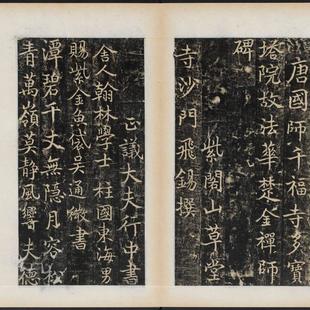 唐國師千福寺多寶
塔院故法華楚金禪師
碑
紫閣山草堂
寺沙門飛錫撰
正議大夫行中書
舍人翰林學士柱國東海男
賜紫金魚袋吳通微書
潭碧千丈無隱月容松
青萬嶺莫静風響夫德